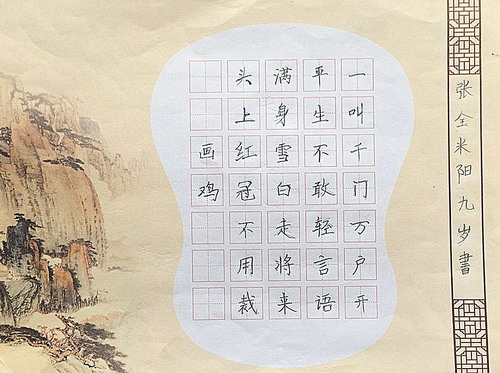 画鸡
头上红冠不用裁
满身雪白走将来
平生不敢轻言语
一叫千门万户开
张全米阳九岁書